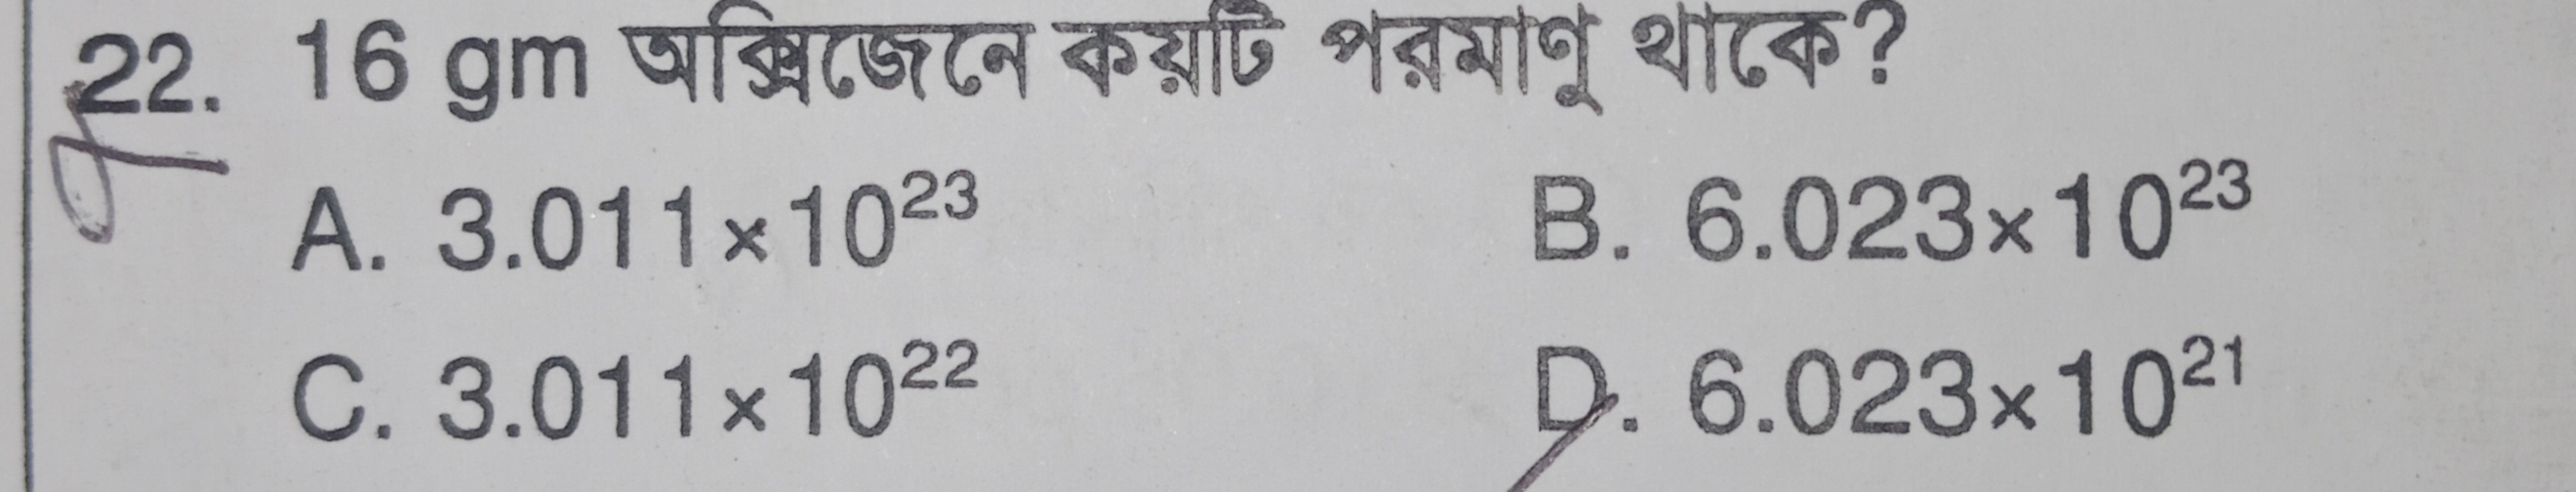 22. 16 gm অক্সিজেনে কয়টি পরমাণু থাকে?
A. 3.011×10²³ B. 6.023×10²³
C. 3.011×10²² D. 6.023×10²¹